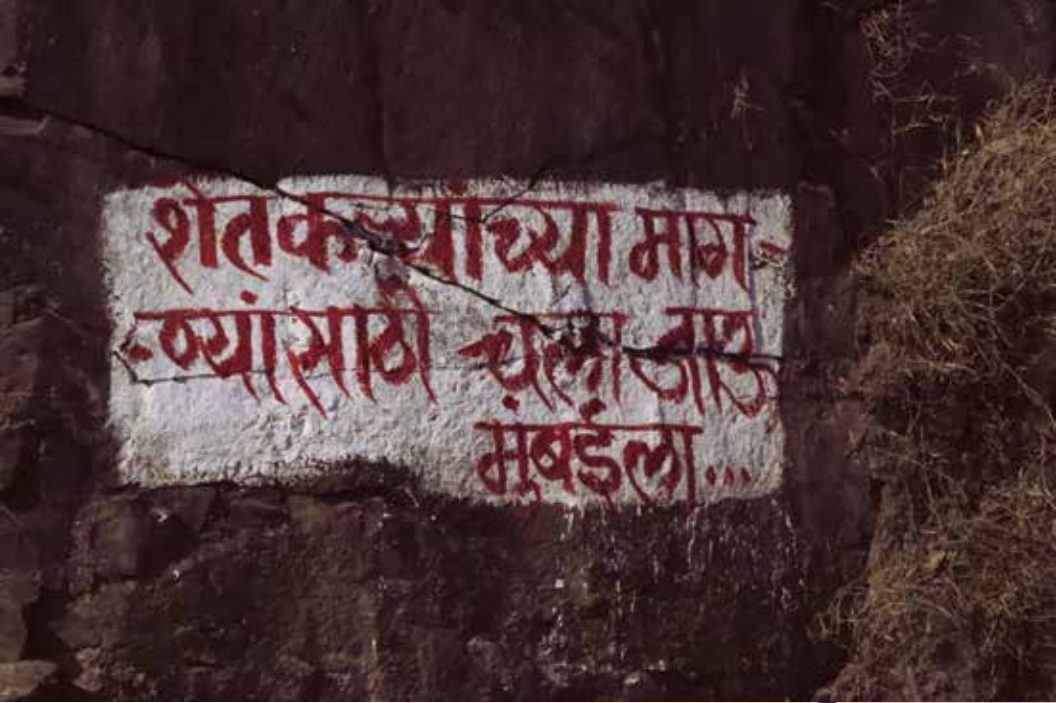 शेतकऱ्यांच्या माग-
-ण्यांसाठी चला जाऊ
मुंबईला...